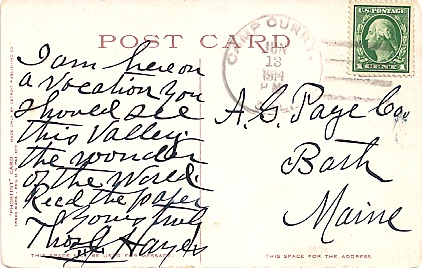 POST CARD
CAMP CURRY
JUN
13
1914
P M
U.S. POSTAGE
1 CENT 1
I am here on
a vocation you
should see
this Valley.
the wonder
of the World.
Recd the paper
Yours truly
Thos G Hayes
A. G. Page Co
Bath
Maine
"PHOSTINT" CARD
MADE ONLY BY DETROIT PUBLISHING CO.
THIS SPACE MAY BE USED FOR MESSAGE.
THIS SPACE IS FOR THE ADDRESS.